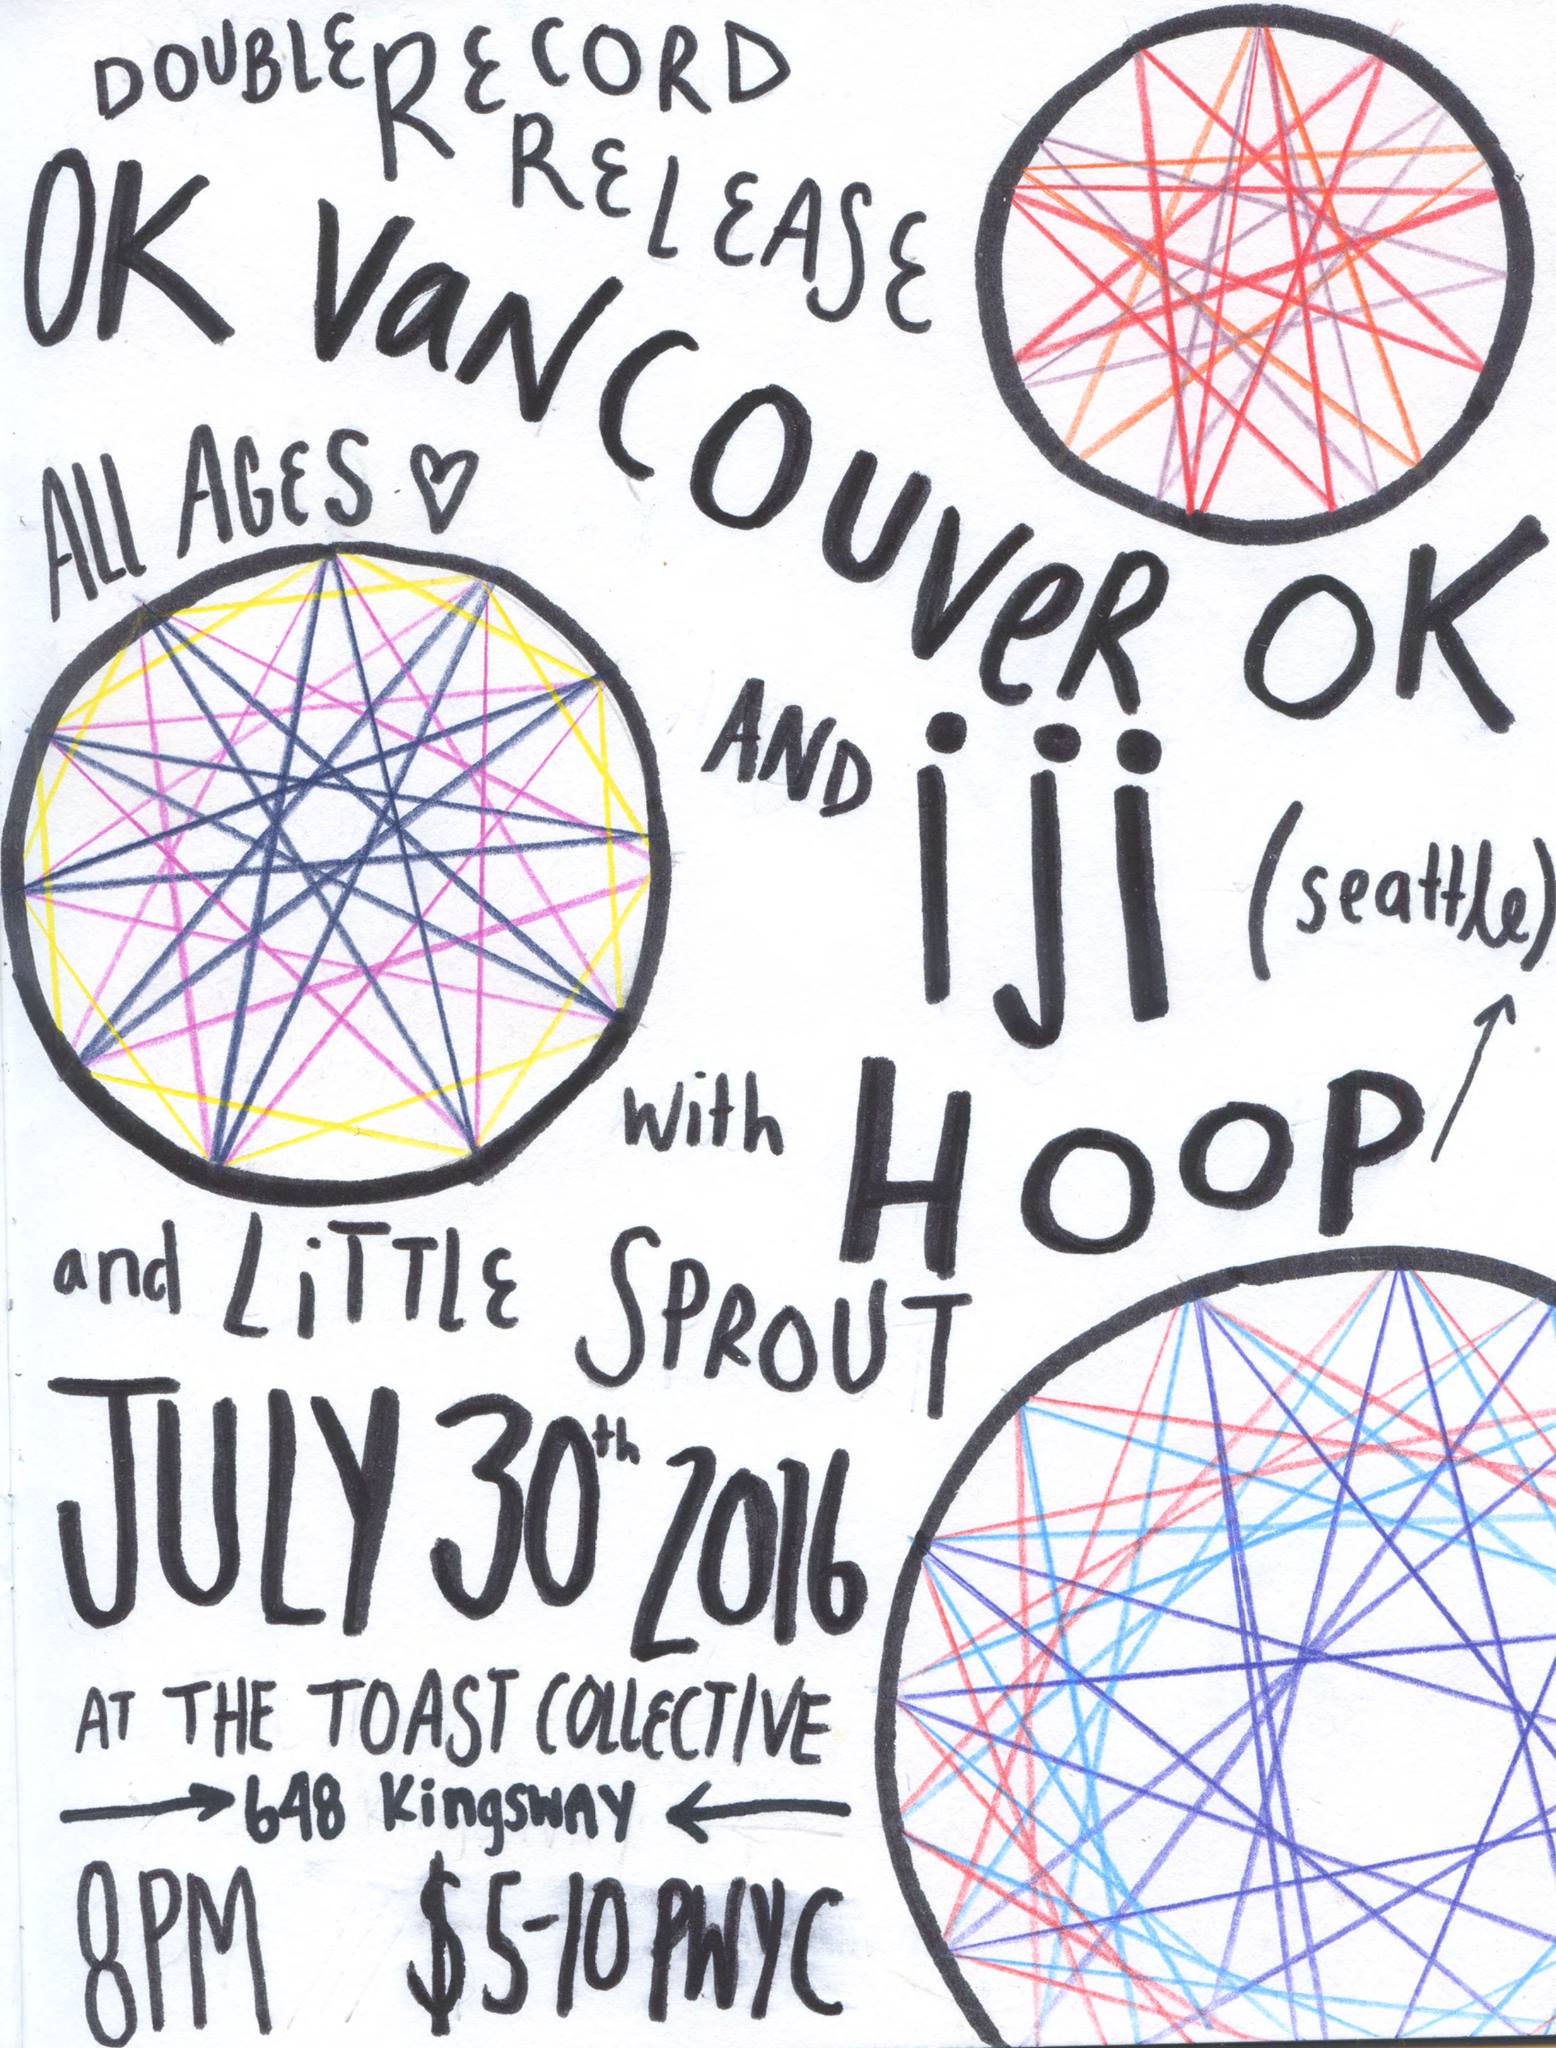 DOUBLE RECORD
RELEASE
OK VANCOUVER OK
ALL AGES ♡
AND iji (seattle)
with HOOP
and LiTTLE SPROUT
JULY 30th 2016
AT THE TOAST COLLECTIVE
→ 648 KingsWAY ←
8PM $5-10 PWYC